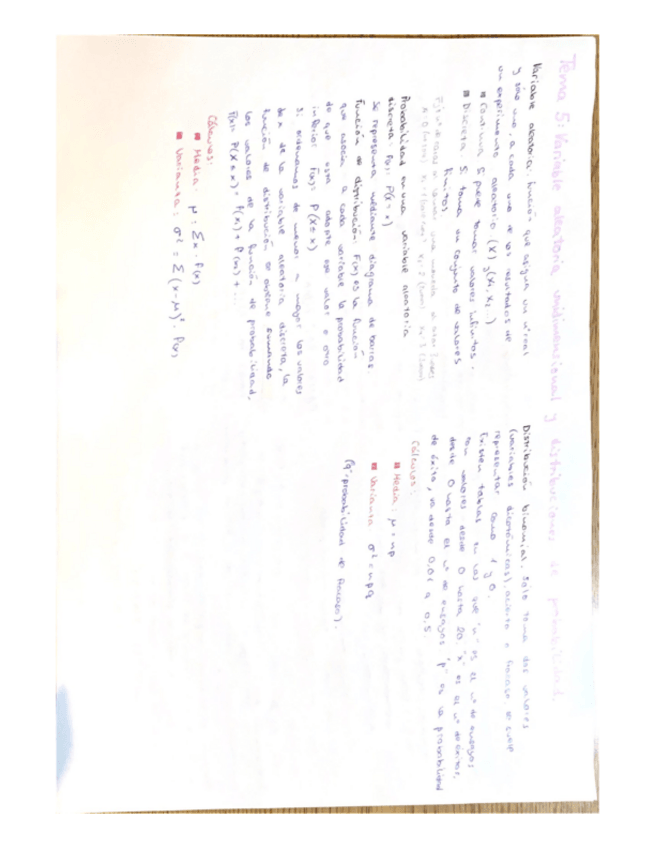 Tema 5: Variable aleatoria unidimensional y distribuciones de probabilidad.
Variable aleatoria: función que asigna un nº real
y sólo uno, a cada uno de los resultados de
un experimento aleatorio (X) y (x1, x2 ...)
■ Continua: Si puede tomar valores infinitos.
■ Discreta: Si toma un conjunto de valores
finitos.
Probabilidad en una variable aleatoria
discreta: P(x) = P(X = x)
Se representa mediante diagrama de barras.
Función de distribución: F(x) es la función
que asocia a cada variable la probabilidad
de que esta adopte ese valor u otro
inferior F(x) = P(X ≤ x)
Si ordenamos de menor a mayor los valores
de x de la variable aleatoria discreta, la
función de distribución se obtiene sumando
los valores de la función de probabilidad.
F(x) = P(X ≤ x) = P(x1) + P(x2) + ...
Cálculos:
■ Media: μ = Σx · P(x)
■ Varianza: σ² = Σ(x-μ)² · P(x)
Distribución binomial. Sólo toma dos valores
(variables dicotómicas), acierto o fracaso. Se suele
representar como 1 y 0.
Existen tablas en las que "n" es el nº de ensayos
con valores desde 0 hasta 20. "x" es el nº de éxitos,
desde 0 hasta el nº de ensayos "p" es la probabilidad
de éxito, va desde 0,01 a 0,5.
Cálculos:
■ Media: μ = np
■ Varianza σ² = npq
(q = probabilidad de fracaso).